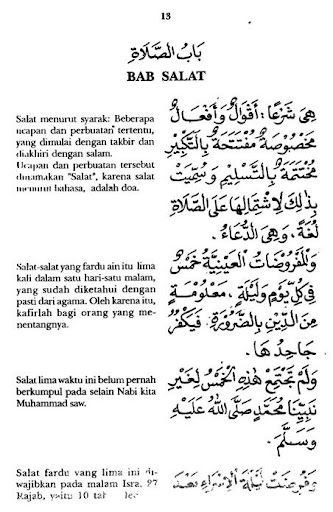 13
بَابُ الصَّلَاةِ
BAB SALAT
Salat menurut syarak: Beberapa
ucapan dan perbuatan tertentu,
yang dimulai dengan takbir dan
diakhiri dengan salam.
Ucapan dan perbuatan tersebut
dinamakan "Salat", karena salat
menurut bahasa, adalah doa.
هِيَ شَرْعًا: أَقْوَالٌ وَأَفْعَالٌ
مَخْصُوصَةٌ مُفْتَتَحَةٌ بِالتَّكْبِيْرِ
مُخْتَتَمَةٌ بِالتَّسْلِيْمِ وَسُمِّيَتْ
بِذٰلِكَ لِاشْتِمَالِهَا عَلَى الصَّلَاةِ
لُغَةً، وَهِيَ الدُّعَاءُ.
Salat-salat yang fardu ain itu lima
kali dalam satu hari-satu malam,
yang sudah diketahui dengan
pasti dari agama. Oleh karena itu,
kafirlah bagi orang yang me-
nentangnya.
وَالْمَفْرُوْضَاتُ الْعَيْنِيَّةُ خَمْسٌ
فِي كُلِّ يَوْمٍ وَلَيْلَةٍ، مَعْلُوْمَةٌ
مِنَ الدِّيْنِ بِالضَّرُوْرَةِ. فَيَكْفُرُ
جَاحِدُهَا.
Salat lima waktu ini belum pernah
berkumpul pada selain Nabi kita
Muhammad saw.
وَلَمْ تَجْتَمِعْ هٰذِهِ الْخَمْسُ لِغَيْرِ
نَبِيِّنَا مُحَمَّدٍ صَلَّى اللهُ عَلَيْهِ
وَسَلَّمَ.
Salat fardu yang lima ini di-
wajibkan pada malam Isra, 27
Rajab, yaitu 10
وَفُرِضَتْ لَيْلَةَ الْإِسْرَاءِ بَعْدَ